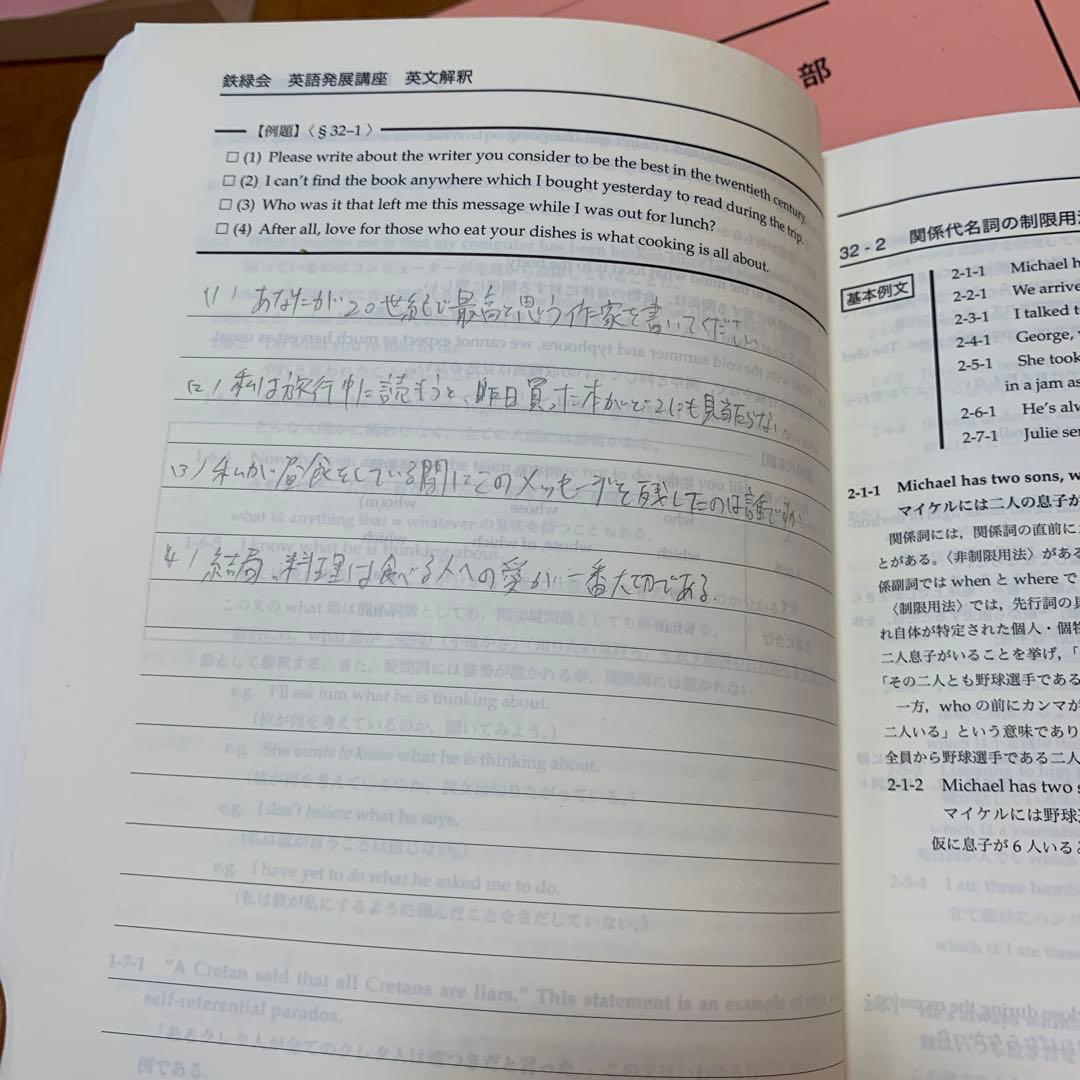 鉄緑会 英語発展講座 英文解釈
【例題】〈§32-1〉
□ (1) Please write about the writer you consider to be the best in the twentieth century.
□ (2) I can't find the book anywhere which I bought yesterday to read during the trip.
□ (3) Who was it that left me this message while I was out for lunch?
□ (4) After all, love for those who eat your dishes is what cooking is all about.
(1) あなたが20世紀で最高と思う作家を書いてください
(2) 私は旅行中に読もうと、昨日買った本がどこにも見当たらない
(3) 私が昼食をしている間にこのメッセージを残したのは誰ですか
(4) 結局、料理は食べる人への愛が一番大切である。
e.g. I'll ask him what he is thinking about.
(彼が何を考えているのか,聞いてみよう。)
e.g. She wants to know what he is thinking about.
e.g. I don't believe what he says.
(私は彼が言うことは信じない。)
e.g. I have yet to do what he asked me to do.
(私は彼が私にするように頼んだことをまだしていない。)
1-7-1 "A Cretan said that all Cretans are liars." This statement is an example of
self-referential paradox.
例である。
部
32-2 関係代名詞の制限用法
基本例文
2-1-1 Michael h
2-2-1 We arrive
2-3-1 I talked t
2-4-1 George,
2-5-1 She took
in a jam as
2-6-1 He's alw
2-7-1 Julie ser
2-1-1 Michael has two sons, w
マイケルには二人の息子が
関係詞には,関係詞の直前に
とがある。〈非制限用法〉がある
係副詞では when と where で
〈制限用法〉では,先行詞の具
れ自体が特定された個人・個物
二人息子がいることを挙げ,「
「その二人とも野球選手である
一方,who の前にカンマが
二人いる」という意味であり
全員から野球選手である二人
2-1-2 Michael has two s
マイケルには野球選
仮に息子が6人いると